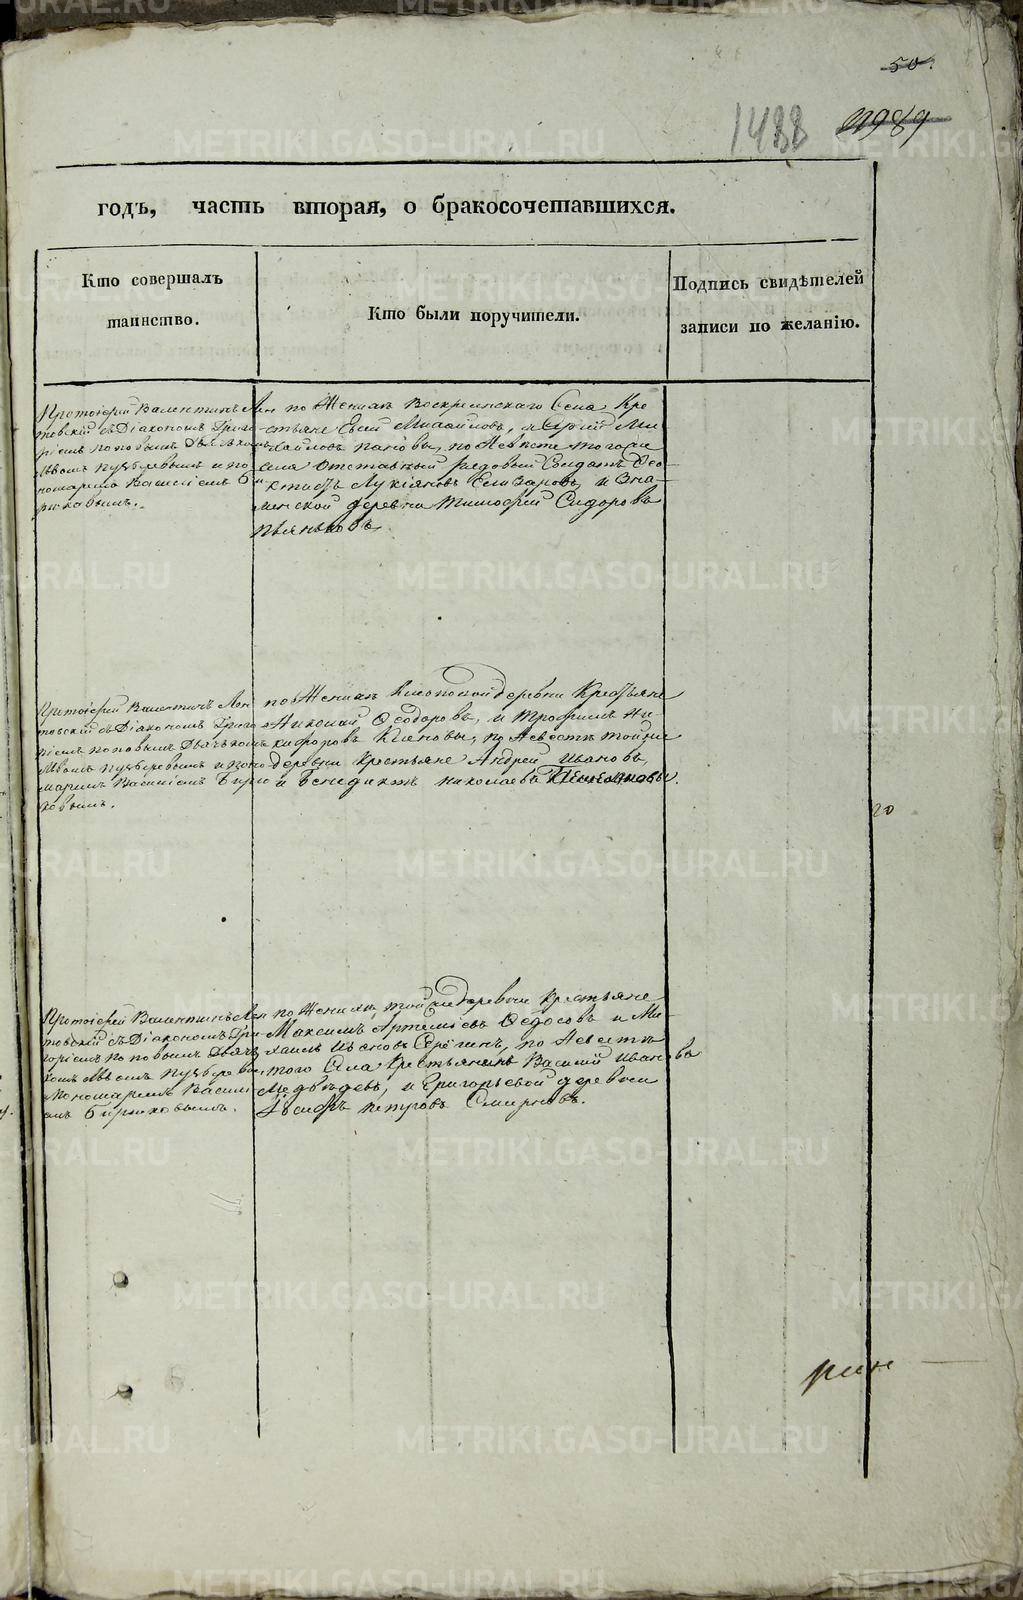 50.
1488
11989
годъ, часть вторая, о бракосочетавшихся.
Кто совершалъ
таинство.
Кто были поручители.
Подпись свидѣтелей
записи по желанію.
Протоіерей Валентинъ Лен
товскій съ Діакономъ Григо
ріемъ Поповымъ Дьячькомъ
Львомъ Пузыревымъ и по
номаремъ Василіемъ Би
рюковымъ.
по женихѣ Воскресенскаго Села Кре
стьяне Михайловъ, и Сергѣй Ми
хайловъ Пановы, по невѣстѣ того села
отставный рядовый Солдатъ Фео
ктистъ Лукіяновъ Елизаровъ, и Зна
менской деревни Тимофей Сидоровъ
Пьяньковъ.
Протоіерей Валентинъ Лен
товскій съ Діакономъ Григо
ріемъ Поповымъ Дьячькомъ
Львомъ Пузыревымъ и поно
маремъ Василіемъ Бирю
ковымъ.
по женихѣ деревни Крестьяне
Николай Феодоровъ, и Трофимъ Ни
кифоровъ по невѣстѣ той же
деревни крестьяне Андрей Ивановъ,
и Бенедиктъ Николаевъ
20
Протоіерей Валентинъ Лен
товскій съ Діакономъ Гри
горіемъ Поповымъ Дьячь
комъ Львомъ Пузыревы
Пономаремъ Васили
емъ Бирюковымъ.
по женихѣ той же деревни крестьяне
Максимъ Артеміевъ Федосовъ и Ми
хаилъ Ивановъ по невѣстѣ
того Села, Крестьянинъ Василій Ивановъ
Медвѣдевъ, и Григорьевой деревни
Іосифъ Петровъ Смирновъ.
METRIKI.GASO-URAL.RU